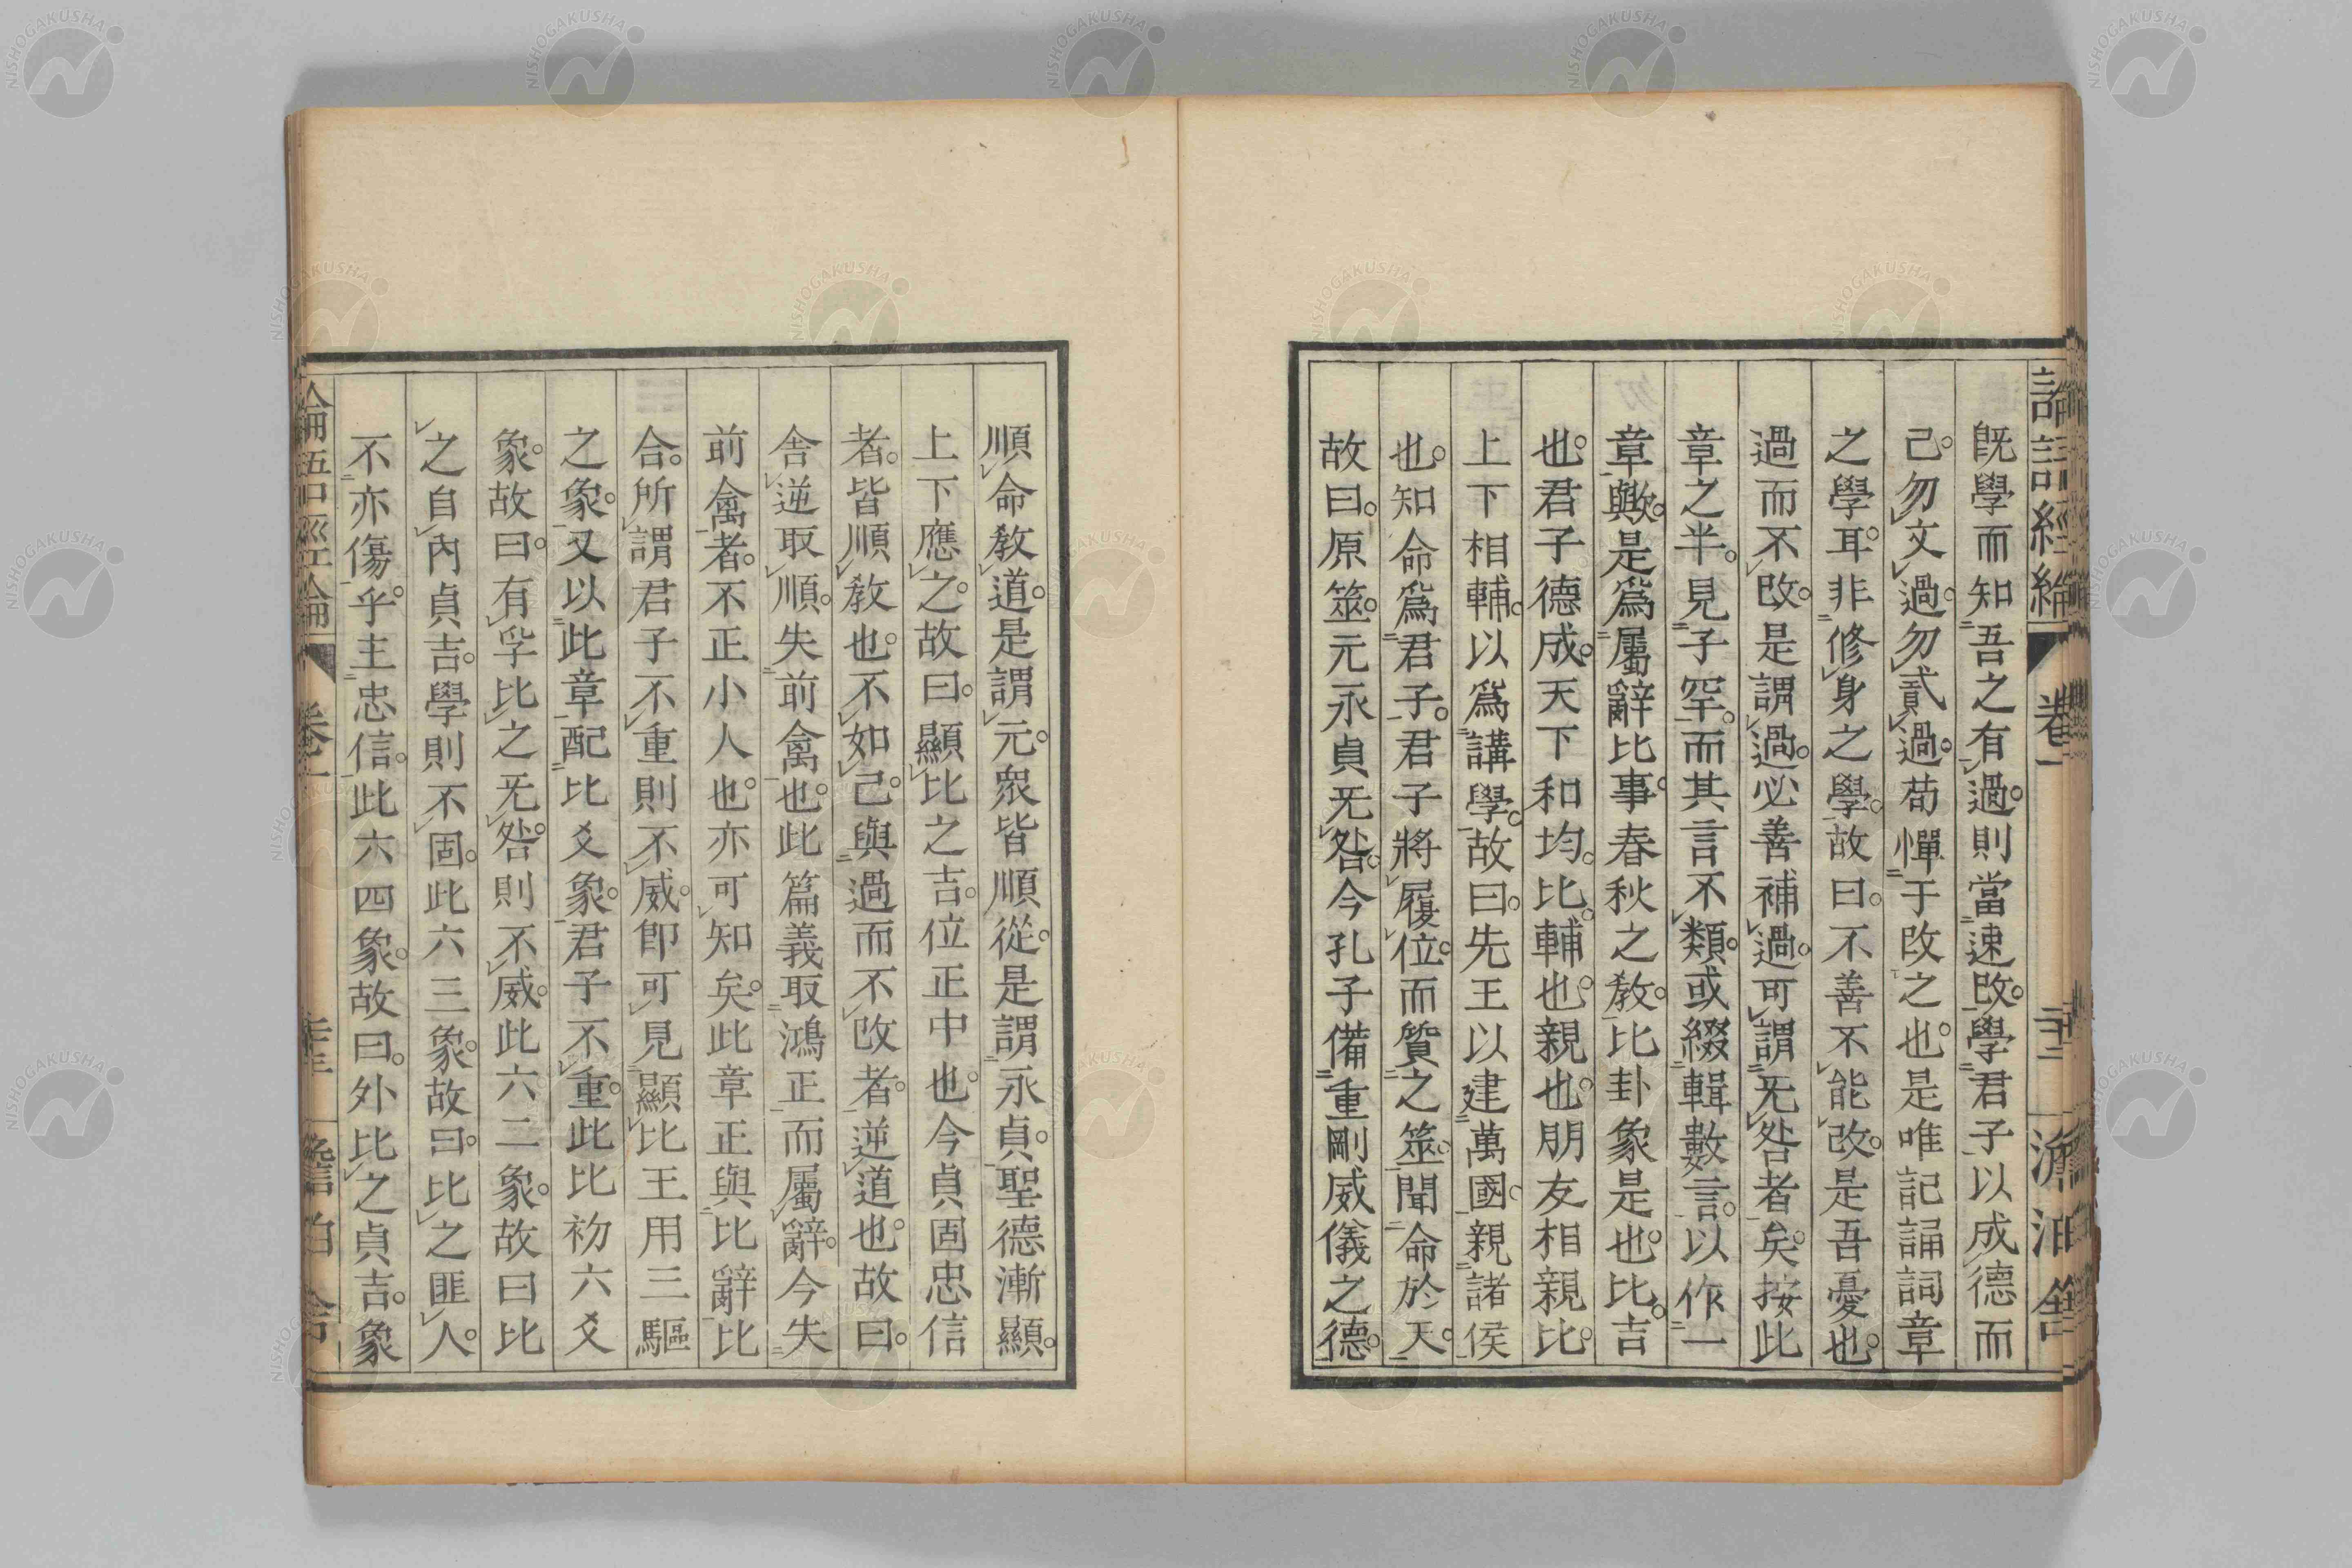 論語經綸 卷一 澹泊舍
既學而知吾之有過。則當速改。學君子以成德而
己。勿文過。勿貳過。苟憚于改之也。是唯記誦詞章
之學耳。非修身之學。故曰。不善不能改。是吾憂也。
過而不改。是謂過。必善補過。可謂无咎者矣。按此
章之半。見子罕。而其言不類。或綴輯數言。以作一
章歟。是爲屬辭比事。春秋之教。比卦象是也。比。吉
也。君子德成。天下和均。比。輔也。親也。朋友相親比。
上下相輔。以爲講學。故曰。先王以建萬國。親諸侯
也。知命爲君子。君子將履位。而質之筮。聞命於天。
故曰。原筮。元永貞无咎。今孔子備重剛威儀之德。
順命教道。是謂元。衆皆順從。是謂永貞。聖德漸顯。
上下應之。故曰。顯比之吉。位正中也。今貞固忠信
者。皆順教也。不如己。與過而不改者。逆道也。故曰。
舍逆取順。失前禽也。此篇義取鴻正而屬辭。今失
前禽者。不正小人也。亦可知矣。此章正與比辭比
合。所謂君子不重則不威。卽可見顯比王用三驅
之象。又以此章配比爻象。君子不重。此比初六爻
象。故曰。有孚比之无咎。則不威。此六二象。故曰比
之自內貞吉。學則不固。此六三象。故曰。比之匪人。
不亦傷乎。主忠信。此六四象。故曰。外比之貞吉。象
論語經綸 卷一 澹泊舍
NISHOGAKUSHA